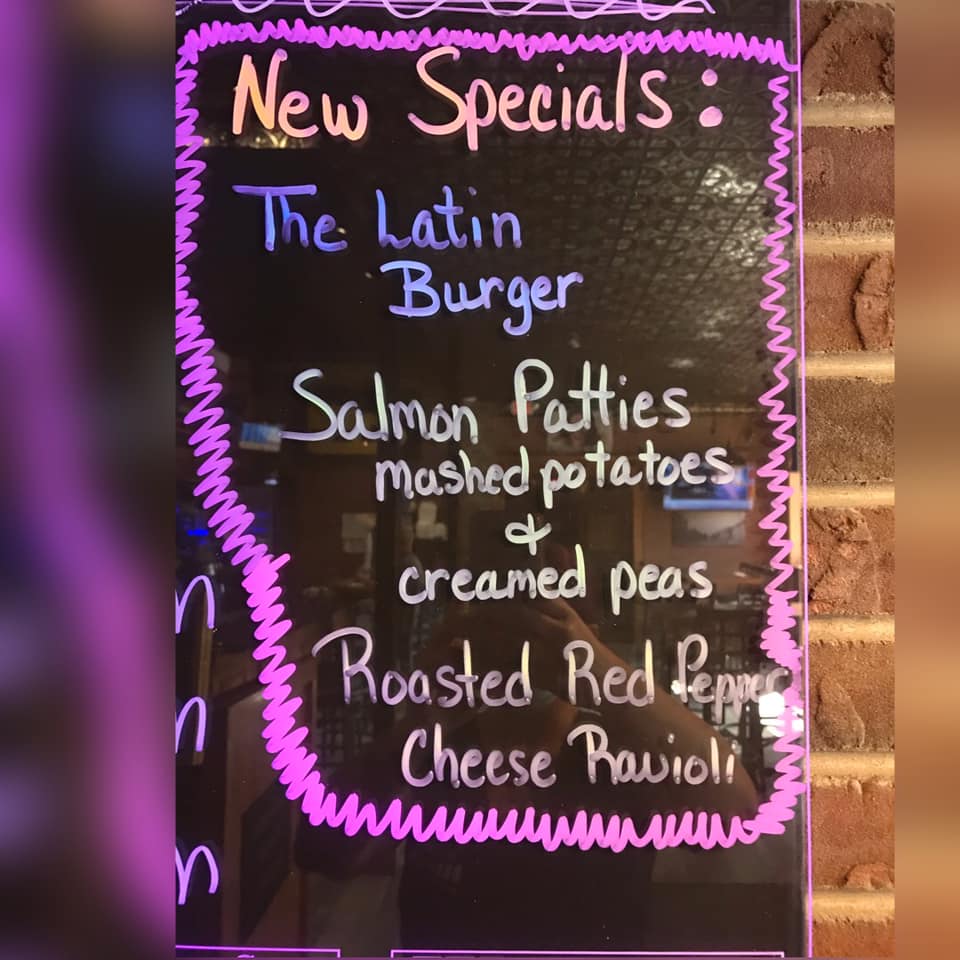 New Specials:
The Latin
Burger
Salmon Patties
mashed potatoes
&
creamed peas
Roasted Red Pepper
Cheese Ravioli
n
n
n